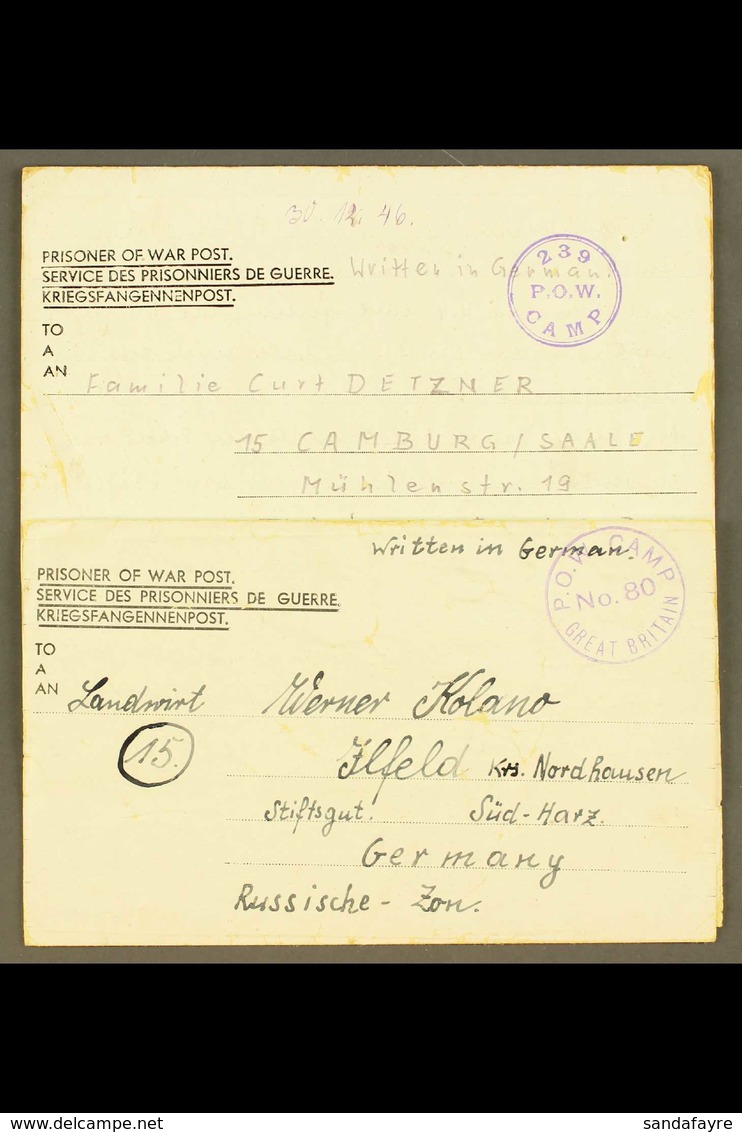 30. 12. 46.
PRISONER OF WAR POST.
SERVICE DES PRISONNIERS DE GUERRE.
KRIEGSFANGENNENPOST.
Written in German.
239
P.O.W.
CAMP
TO
A
AN
Familie Curt DETZNER
15 CAMBURG/SAALE
Mühlenstr. 19
Written in German.
P.O.W. CAMP
No. 80
GREAT BRITAIN
PRISONER OF WAR POST.
SERVICE DES PRISONNIERS DE GUERRE.
KRIEGSFANGENNENPOST.
TO
A
AN
Landwirt Werner Kolano
15.
Ilfeld Krs. Nordhausen
Stiftsgut. Süd-Harz.
Germany
Russische - Zon.
delcampe.net
sandafayre